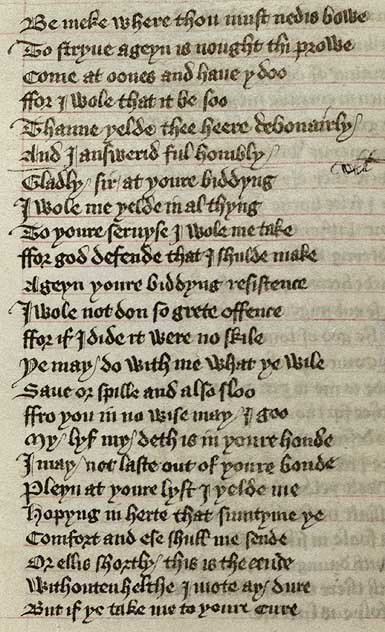 Be meke where thou must nedis bowe
To stryue ageyn is nought thi prowe
Come at oones and haue y doo
ffor I wole that it be soo
Thanne yelde thee heere debonairly /
And I answerid ful hombly /
Gladly / sir / at youre biddyng
I wole me yelde in al thyng
To youre seruyse I wole me take
ffor god defende that I shulde make
Ageyn youre biddyng resistence
I wole not don so grete offence
ffor if I dide it were no skile
Ye may / do with me what ye wile
Saue or spille and also sloo
ffro you in no wise may / I goo
My / lyf my / deth is in youre honde
I may / not laste out of youre bonde
Pleyn at youre lyst I yelde me
Hopyng in herte that sumtyme ye
Comfort and ese shull me sende
Or ellis shortly / this is the eende
Withouten helthe I mote ay / dure
But if ye take me to youre cure